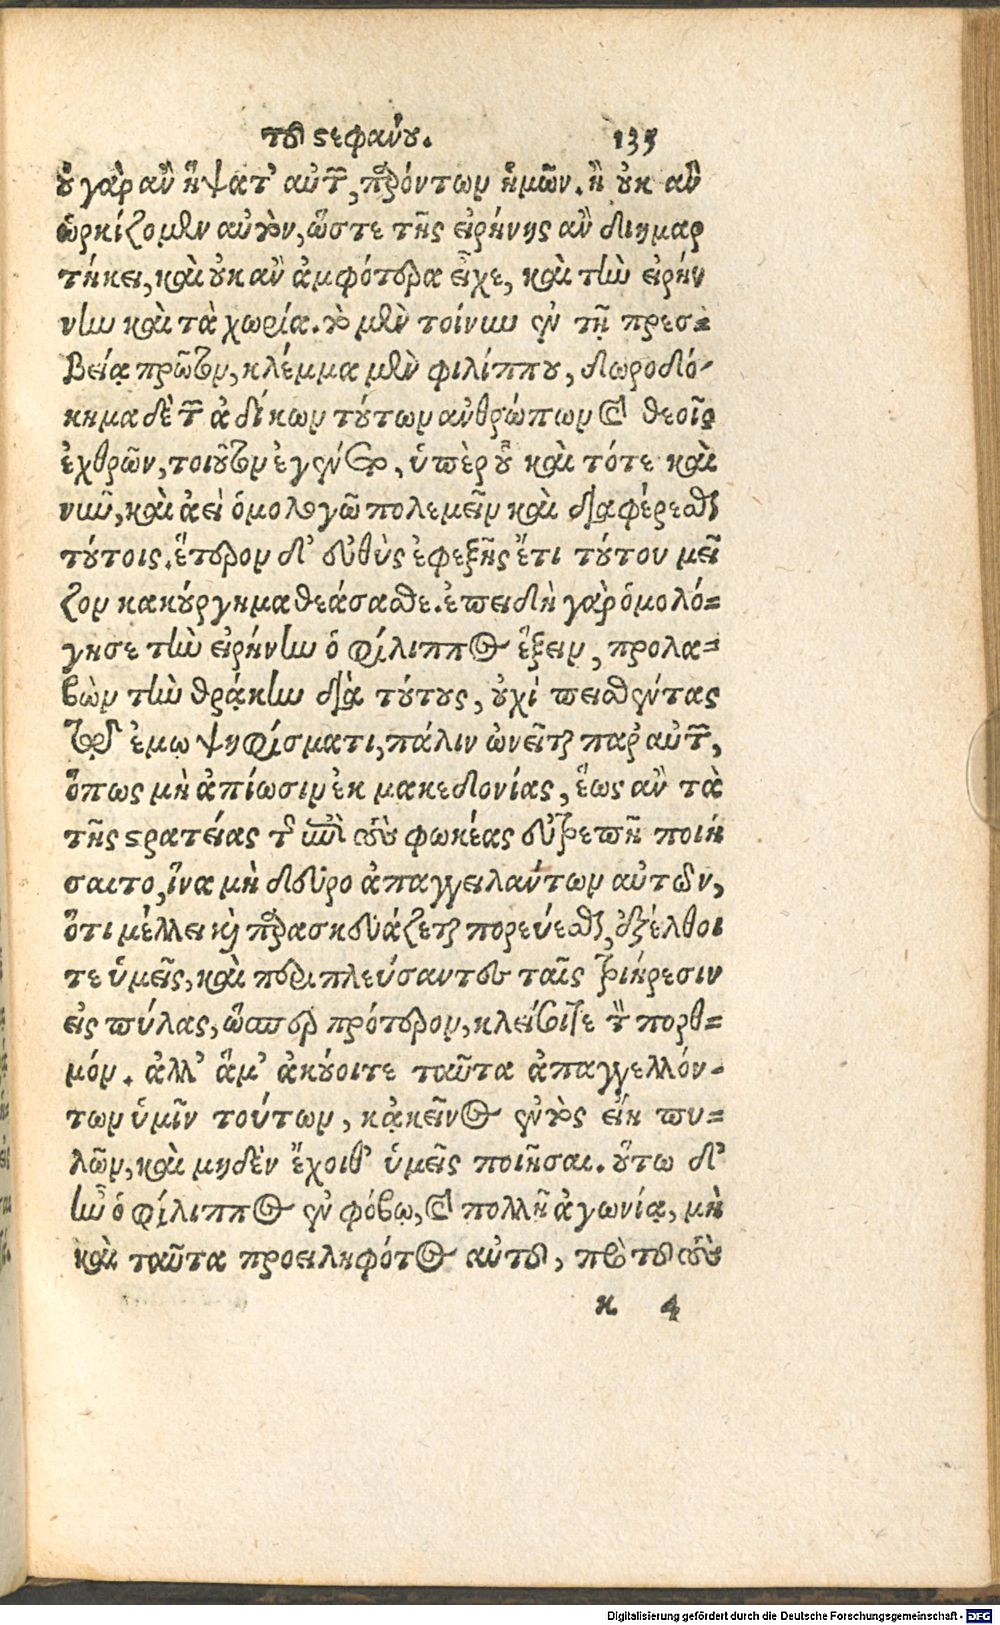 τοῦ στεφάνου. 135
οὐ γὰρ ἂν ἥψατ' αὐτῶν, παρόντων ἡμῶν. ἢ οὐκ ἂν
ὡρκίζομεν αὐτὸν, ὥστε τῆς εἰρήνης ἂν διημαρ
τήκει, καὶ οὐκ ἂν ἀμφότερα εἶχε, καὶ τὴν εἰρήν
νην καὶ τὰ χωρία. τὸ μὲν τοίνυν ἐν τῇ πρεσ-
βείᾳ πρῶτον, κλέμμα μὲν φιλίππου, δωροδό-
κημα δὲ τῶν ἀδίκων τούτων ἀνθρώπων καὶ θεοῖς
ἐχθρῶν, τοιοῦτον ἐγένετο, ὑπὲρ οὗ καὶ τότε καὶ
νῦν, καὶ ἀεὶ ὁμολογῶ πολεμεῖν καὶ διαφέρεσθαι
τούτοις. ἕτερον δ' εὐθὺς ἐφεξῆς ἔτι τούτου μεῖ
ζον κακούργημα θεάσασθε. ἐπειδὴ γὰρ ὁμολό-
γησε τὴν εἰρήνην ὁ φίλιππος ἕξειν, προλα-
βὼν τὴν θρᾴκην διὰ τούτους, οὐχὶ πεισθέντας
τῷ ἐμῷ ψηφίσματι, πάλιν ὠνεῖται παρ' αὐτῶν,
ὅπως μὴ ἀπίωσιν ἐκ μακεδονίας, ἕως ἂν τὰ
τῆς στρατείας τῆς ἐπὶ τοὺς φωκέας εὐτρεπῆ ποιή
σαιτο, ἵνα μὴ δεῦρο ἀπαγγειλάντων αὐτῶν,
ὅτι μέλλει καὶ παρασκευάζεται πορεύεσθαι, ἐξέλθοι
τε ὑμεῖς, καὶ περιπλεύσαντες ταῖς τριήρεσιν
εἰς πύλας, ὥσπερ πρότερον, κλείσαιτε τὸν πορθ-
μόν. ἀλλ' ἅμ' ἀκούοιτε ταῦτα ἀπαγγελλόν-
των ὑμῖν τούτων, κἀκεῖνος ἐντὸς εἴη πυ-
λῶν, καὶ μηδὲν ἔχοιθ' ὑμεῖς ποιῆσαι. οὕτω δ'
ἦν ὁ φίλιππος ἐν φόβῳ, καὶ πολλῇ ἀγωνίᾳ, μὴ
καὶ ταῦτα προειληφότος αὐτοῦ, πρὸ τοῦ τοὺς
κ 4
Digitalisierung gefördert durch die Deutsche Forschungsgemeinschaft - DFG